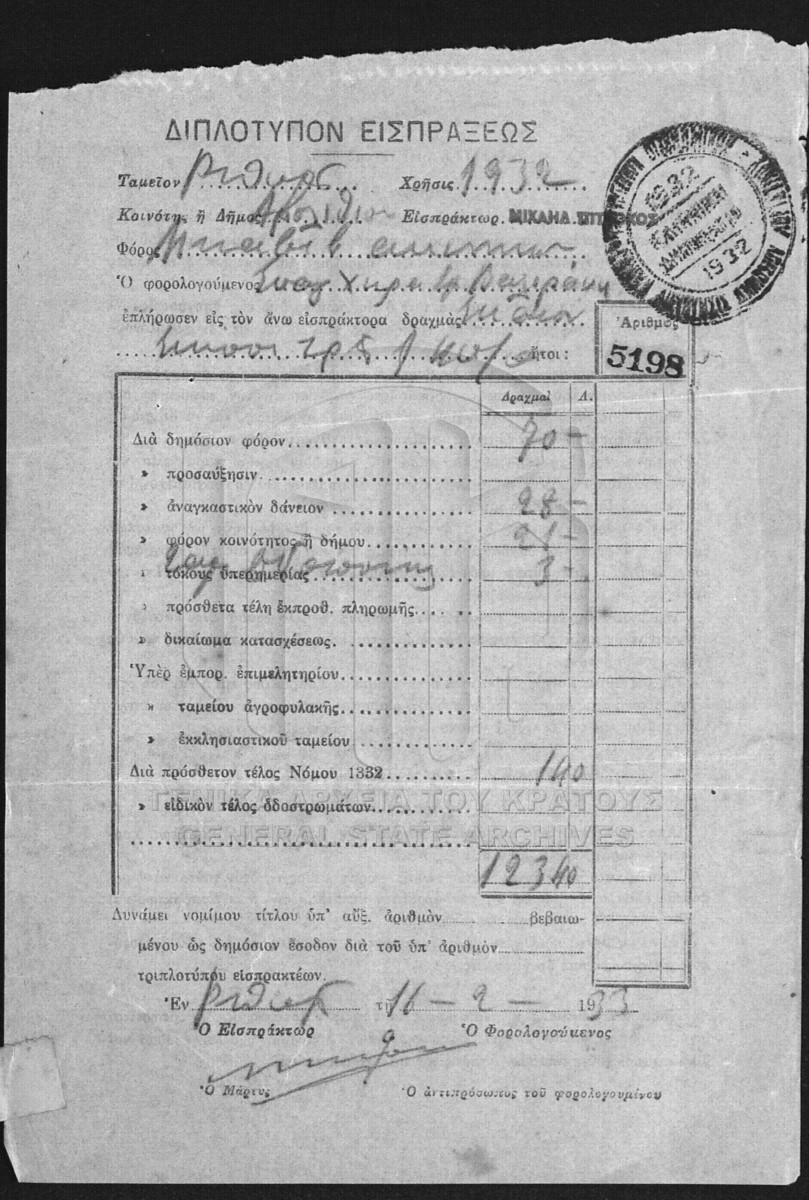 ΔΙΠΛΟΤΥΠΟΝ ΕΙΣΠΡΑΞΕΩΣ
Ταμεῖον Ρεθύμ Χρῆσις 1932
Κοινότης ἢ Δῆμος Εἰσπράκτωρ ΜΙΧΑΗΛ
Φόρος
Ὁ φορολογούμενος
ἐπλήρωσεν εἰς τὸν ἄνω εἰσπράκτορα δραχμὰς Ἑκατὸν
εἴκοσι τρεῖς ἤτοι:
Ἀριθμὸς
5198
1932
ΕΛΛΗΝΙΚΗ
ΔΗΜΟΚΡΑΤΙΑ
1932
Δραχμαὶ Λ.
Διὰ δημόσιον φόρον 70 –
» προσαύξησιν
» ἀναγκαστικὸν δάνειον 28 –
» φόρον κοινότητος ἢ δήμου 21 –
» τόκους ὑπερημερίας 3 –
» πρόσθετα τέλη ἐκπροθ. πληρωμῆς
» δικαίωμα κατασχέσεως
Ὑπὲρ ἐμπορ. ἐπιμελητηρίου
» ταμείου ἀγροφυλακῆς
» ἐκκλησιαστικοῦ ταμείου
Διὰ πρόσθετον τέλος Νόμου 1332 1 40
» εἰδικὸν τέλος ὁδοστρωμάτων
ΓΕΝΙΚΑ ΑΡΧΕΙΑ ΤΟΥ ΚΡΑΤΟΥΣ
GENERAL STATE ARCHIVES
123 40
Δυνάμει νομίμου τίτλου ὑπ' αὔξ. ἀριθμὸν βεβαιω-
μένου ὡς δημόσιον ἔσοδον διὰ τοῦ ὑπ' ἀριθμὸν
τριπλοτύπου εἰσπρακτέων.
Ἐν Ρεθύμ τῇ 16 – 2 – 1933
Ὁ Εἰσπράκτωρ Ὁ Φορολογούμενος
Ὁ Μάρτυς Ὁ ἀντιπρόσωπος τοῦ φορολογουμένου